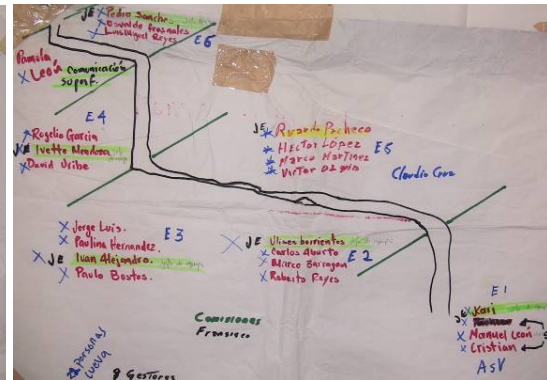 JE X Pedro Sanchez
X Oswaldo Gresnales
X Luis Miguel Reyes E6
Pamela
X León
Comunicación
Superf.
E4
X Rogelio Garcia
X JE Ivette Mendoza
X David Uribe
JE X Ricardo Pacheco
X HECTOR LOPEZ E5
X Marco Martinez
X Victor
Claudio Cruz
X Jorge Luis. E3
X Paulina Hernandez.
X JE Juan Alejandro.
X Paulo Bastos.
X JE Ulises barrientos
X Carlos Aburto E2
X Marco Barragan
X Roberto Reyes
E1
JE X Kari
X
X Manuel Leon
X Cristian
AsV
Comisiones
Fransisco
personas
cueva
9 Gestores